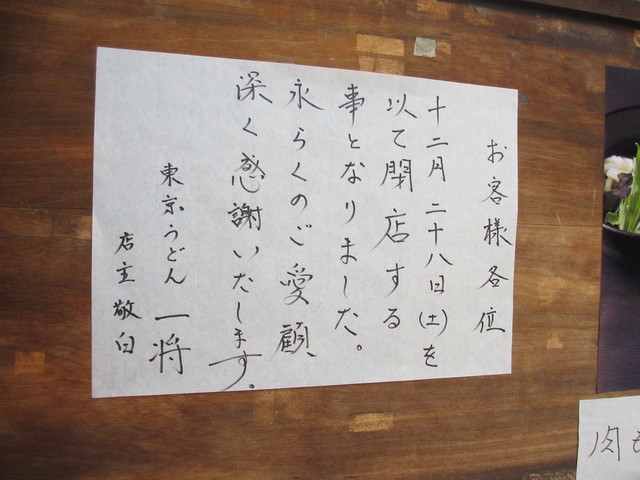 お客様各位
十二月二十八日(土)を
以て閉店する
事となりました。
永らくのご愛顧、
深く感謝いたします。
東京うどん 一将
店主敬白
肉も